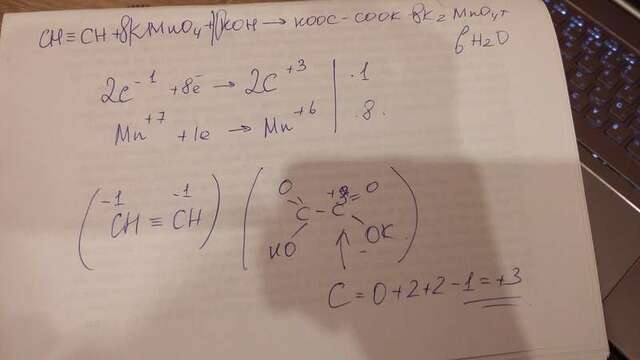 CH≡CH + 8KMnO₄ + 10KOH → KOOC-COOK 8K₂MnO₄+
6H₂O
2C⁻¹ + 8ē → 2C⁺³ | ·1
Mn⁺⁷ + 1e → Mn⁺⁶ | ·8·
-1 -1
(CH≡CH)
O +3 O
C - C
KO OK
C = 0+2+2-1=+3